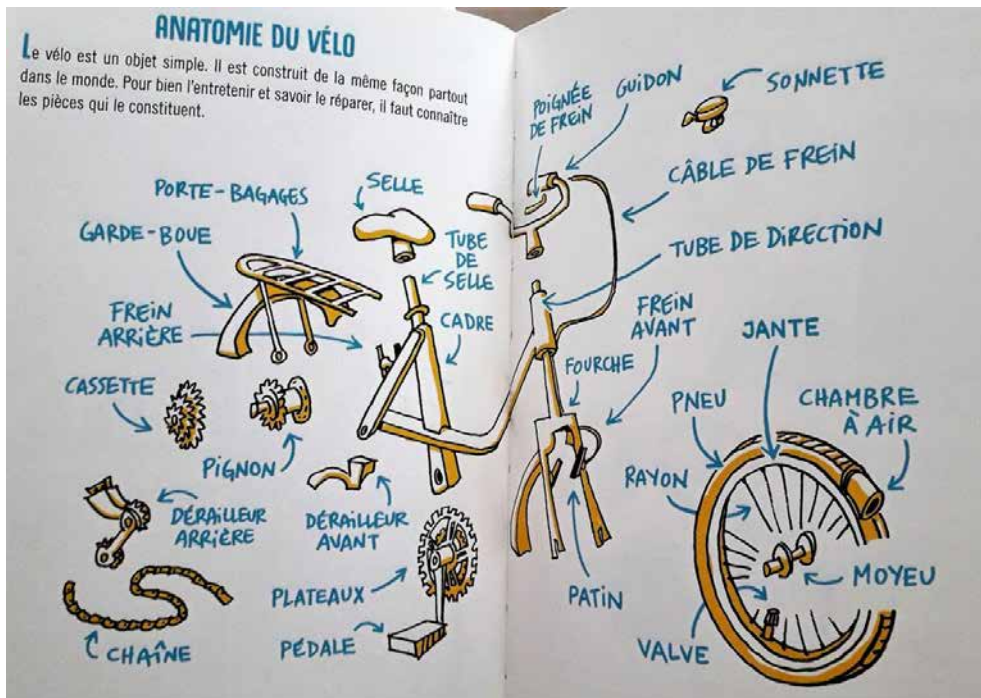 ANATOMIE DU VÉLO
Le vélo est un objet simple. Il est construit de la même façon partout
dans le monde. Pour bien l'entretenir et savoir le réparer, il faut connaître
les pièces qui le constituent.
PORTE-BAGAGES
SELLE
GARDE-BOUE
TUBE
DE
SELLE
FREIN
ARRIÈRE
CADRE
CASSETTE
PIGNON
DÉRAILLEUR
ARRIÈRE
DÉRAILLEUR
AVANT
PLATEAUX
CHAÎNE
PÉDALE
POIGNÉE
DE FREIN
GUIDON
SONNETTE
CÂBLE DE FREIN
TUBE DE DIRECTION
FREIN
AVANT
JANTE
FOURCHE
PNEU
CHAMBRE
À AIR
RAYON
PATIN
MOYEU
VALVE